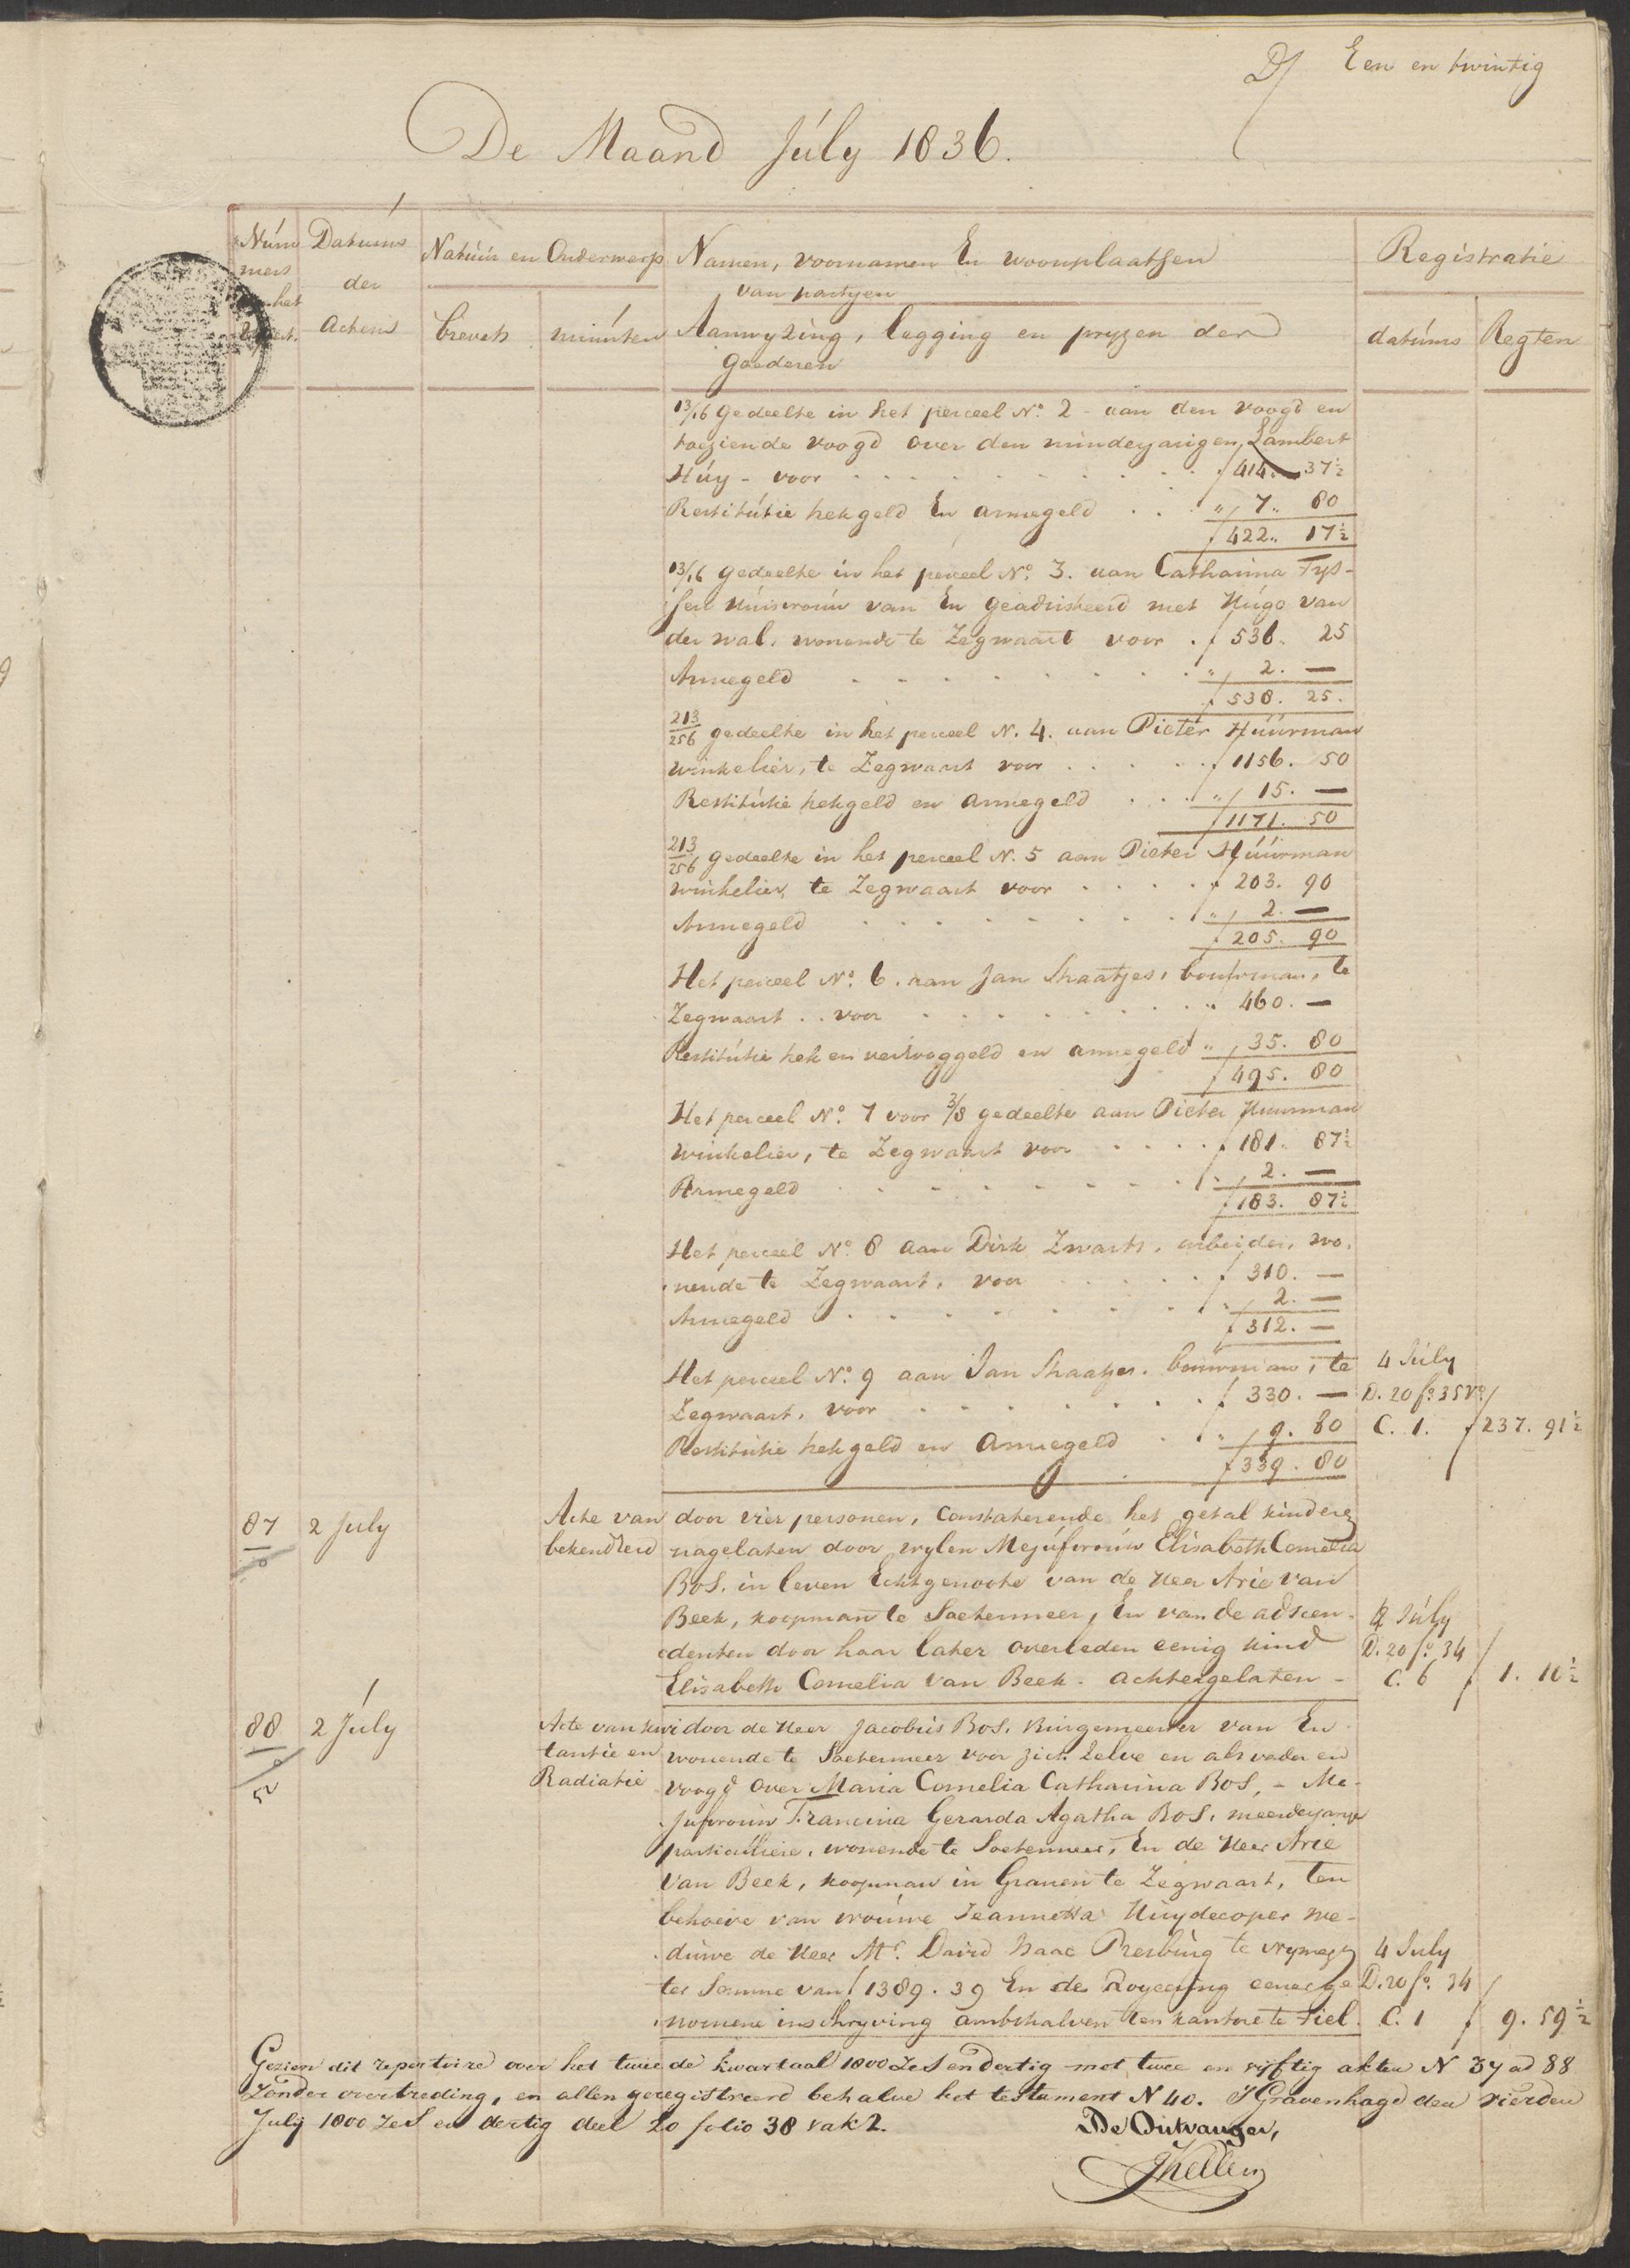 Een en twintig
De Maand Júly 1836.
Núm Datums Natúúr en Onderwerp Namen, voornamen En woonplaatsen Registratie
mers der van partyen
het Actens brevets minúten Aanwyzing, legging en pryzen der datúms Regten
Goederen
13/16 gedeelte in het perceel No. 2 - aan den voogd en
toeziende voogd over den minderjarigen, Lambert
Húy - voor f 414. 37½
Restitútie hekgeld En armegeld " 7,, 80
f 422,, 17½
13/16 gedeelte in het perceel No. 3. aan Catharina Tys-
sen Húisvroúw van En geadsisteerd met Húgo van
der wal, wonende te Zegwaart voor f 536. 25
Armegeld " 2. —
f 538. 25.
213/256 gedeelte in het perceel N. 4. aan Pieter Húúrman
winkelier, te Zegwaart voor f 1156. 50
Restitútie hekgeld en armegeld " 15. —
f 1171. 50
213/256 gedeelte in het perceel N. 5 aan Pieter Húúrman
winkelier, te Zegwaart voor f 203. 90
Armegeld " 2. —
f 205. 90
Het perceel No. 6. aan Jan Shaatjes, bouwman, te
Zegwaart .. voor " 460. —
Restitútie hek en geld en armegeld " 35. 80
f 495. 80
Het perceel No. 7 voor 3/8 gedeelte aan Pieter Huurman
winkelier, te Zegwaart voor f 181. 87½
Armegeld 2. —
f 183. 87½
Het perceel No. 8 aan Dirk Zwarts, arbeider, wo-
nende te Zegwaart, voor f 310. —
Armegeld 2. —
f 312. —
Het perceel No. 9 aan Jan Shaatjes. bouwman, te 4 Júly
Zegwaart, voor f 330. — D. 20 fo. 35 Vo.
Restitútie hekgeld en Armegeld " 9. 80 C. 1. f 237. 91½
f 339. 80
87 2 July Acte van door vier personen, Constaterende het getal kinderen
bekendheid nagelaten door wylen Mejúfvroúw Elisabeth Cornelia
Bos. in leven Echtgenoote van de Heer Arie van
Beek, koopman te Soetermeer, En van de adscen- 2 Júly
denten door haar later overleden eenig kind D. 20 fo. 34
Elisabeth Cornelia van Beek - achtergelaten - C. 6 f 1. 10½
88 2 Júly Acte van kwi door de Heer Jacobús Bos, Búrgemeester van En
tantie en wonende te Soetermeer voor zich Zelve en als vader en
Radiatie voogd over Maria Cornelia Catharina Bos, - Me-
jufvroúw Francina Gerarda Agatha Bos, meerderjarige
particúliere, wonende te Soetermeer, En de Heer Arie
Van Beek, koopman in Granen te Zegwaart, Ten
behoeve van vroúwe Jeannetta Húydecoper we-
dúwe de Heer Mr. David Isaac te Nymegen 4 July
ter Somme van f 1389. 39 En de Royeering eener ge D. 20 fo. 34
nomene inschryving ambtshalven ten kantore te Tiel. C. 1 f 9. 59½
Gezien dit repertoire over het tweede kwartaal 1800 zes en dertig met twee en vijftig akten N 37 ad 88
zonder overtreding, en allen geregistreerd behalve het testament N 40. S'Gravenhage den vierden
July 1800 zes en dertig deel 20 folio 38 vak 2.
De Ontvanger,